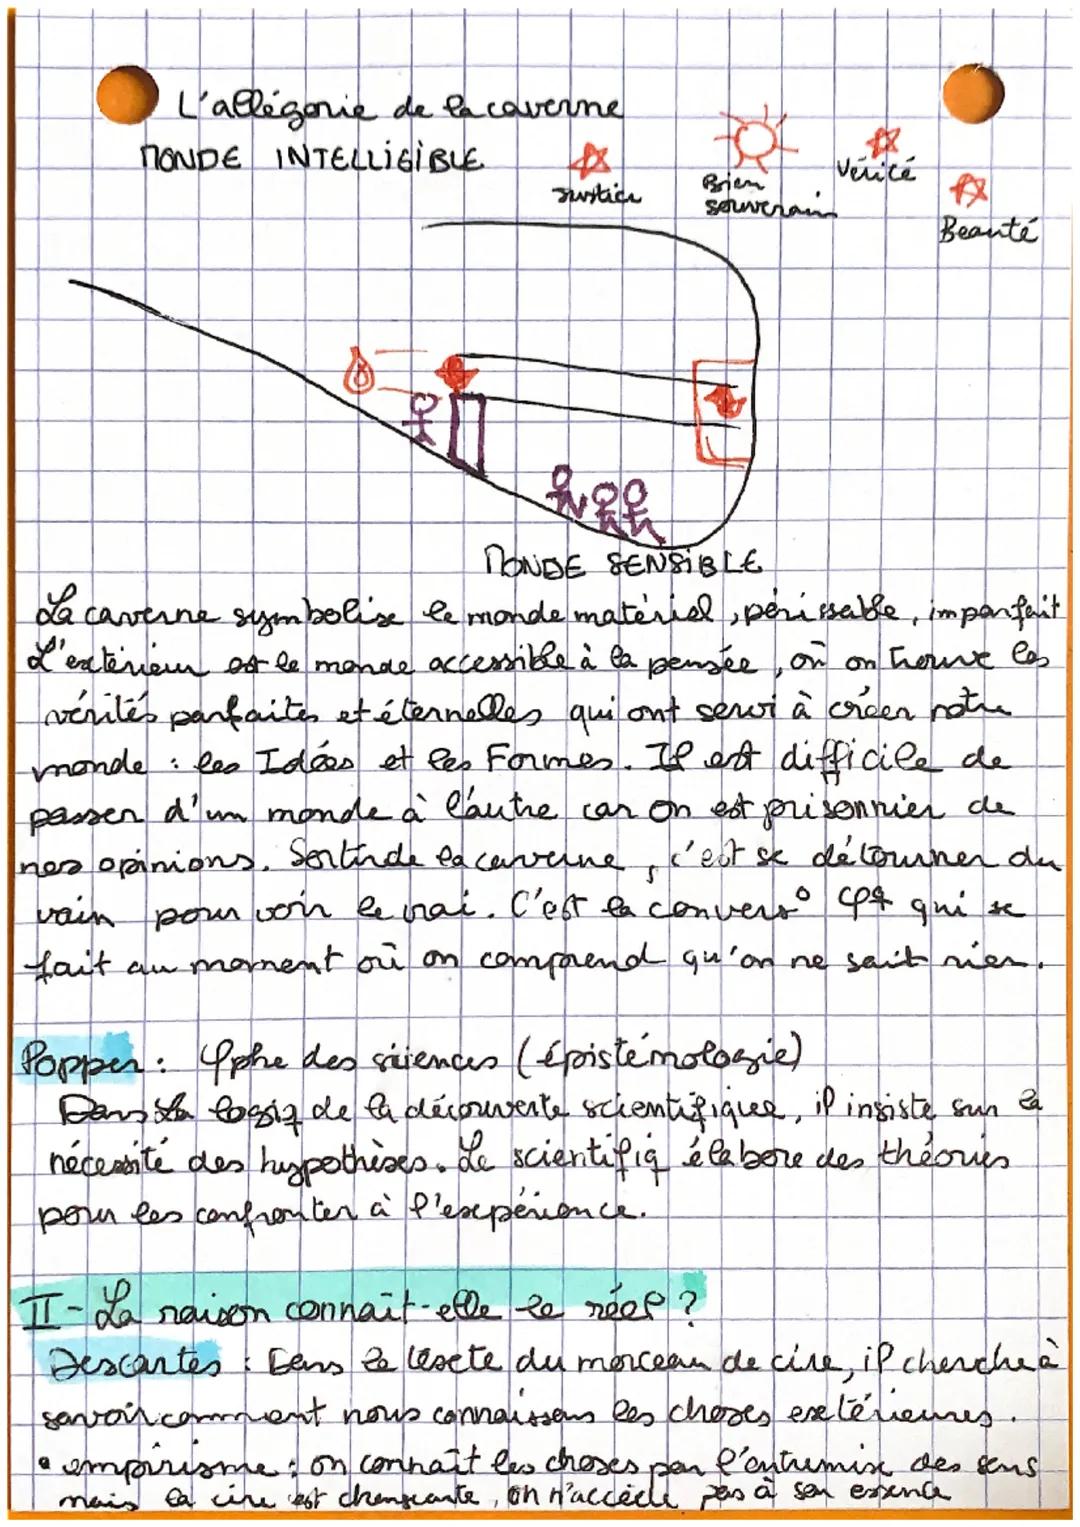 L'allégorie de la caverne
MONDE INTELLIGIBLE
Justice
Bien
souverain
Vérité
Beauté
MONDE SENSIBLE
La caverne symbolise le monde matériel, périssable, imparfait
L'extérieur est le monde accessible à la pensée, où on trouve les
vérités parfaites et éternelles qui ont servi à créer notre
monde : les Idées et les Formes. Il est difficile de
passer d'un monde à l'autre car on est prisonnier de
nos opinions. Sortir de la caverne, c'est se détourner du
vain pour voir le vrai. C'est la convers° φq qui se
fait au moment où on comprend qu'on ne sait rien.
Popper : φphe des sciences (épistémologie)
Dans La logiq de la découverte scientifique, il insiste sur la
nécessité des hypothèses. Le scientifiq élabore des théories
pour les confronter à l'expérience.
II - La raison connaît-elle le réel ?
Descartes : Dans le texte du morceau de cire, il cherche à
savoir comment nous connaissons les choses extérieures.
• empirisme : on connaît les choses par l'entremise des sens
mais la cire est changeante, on n'accède pas à son essence